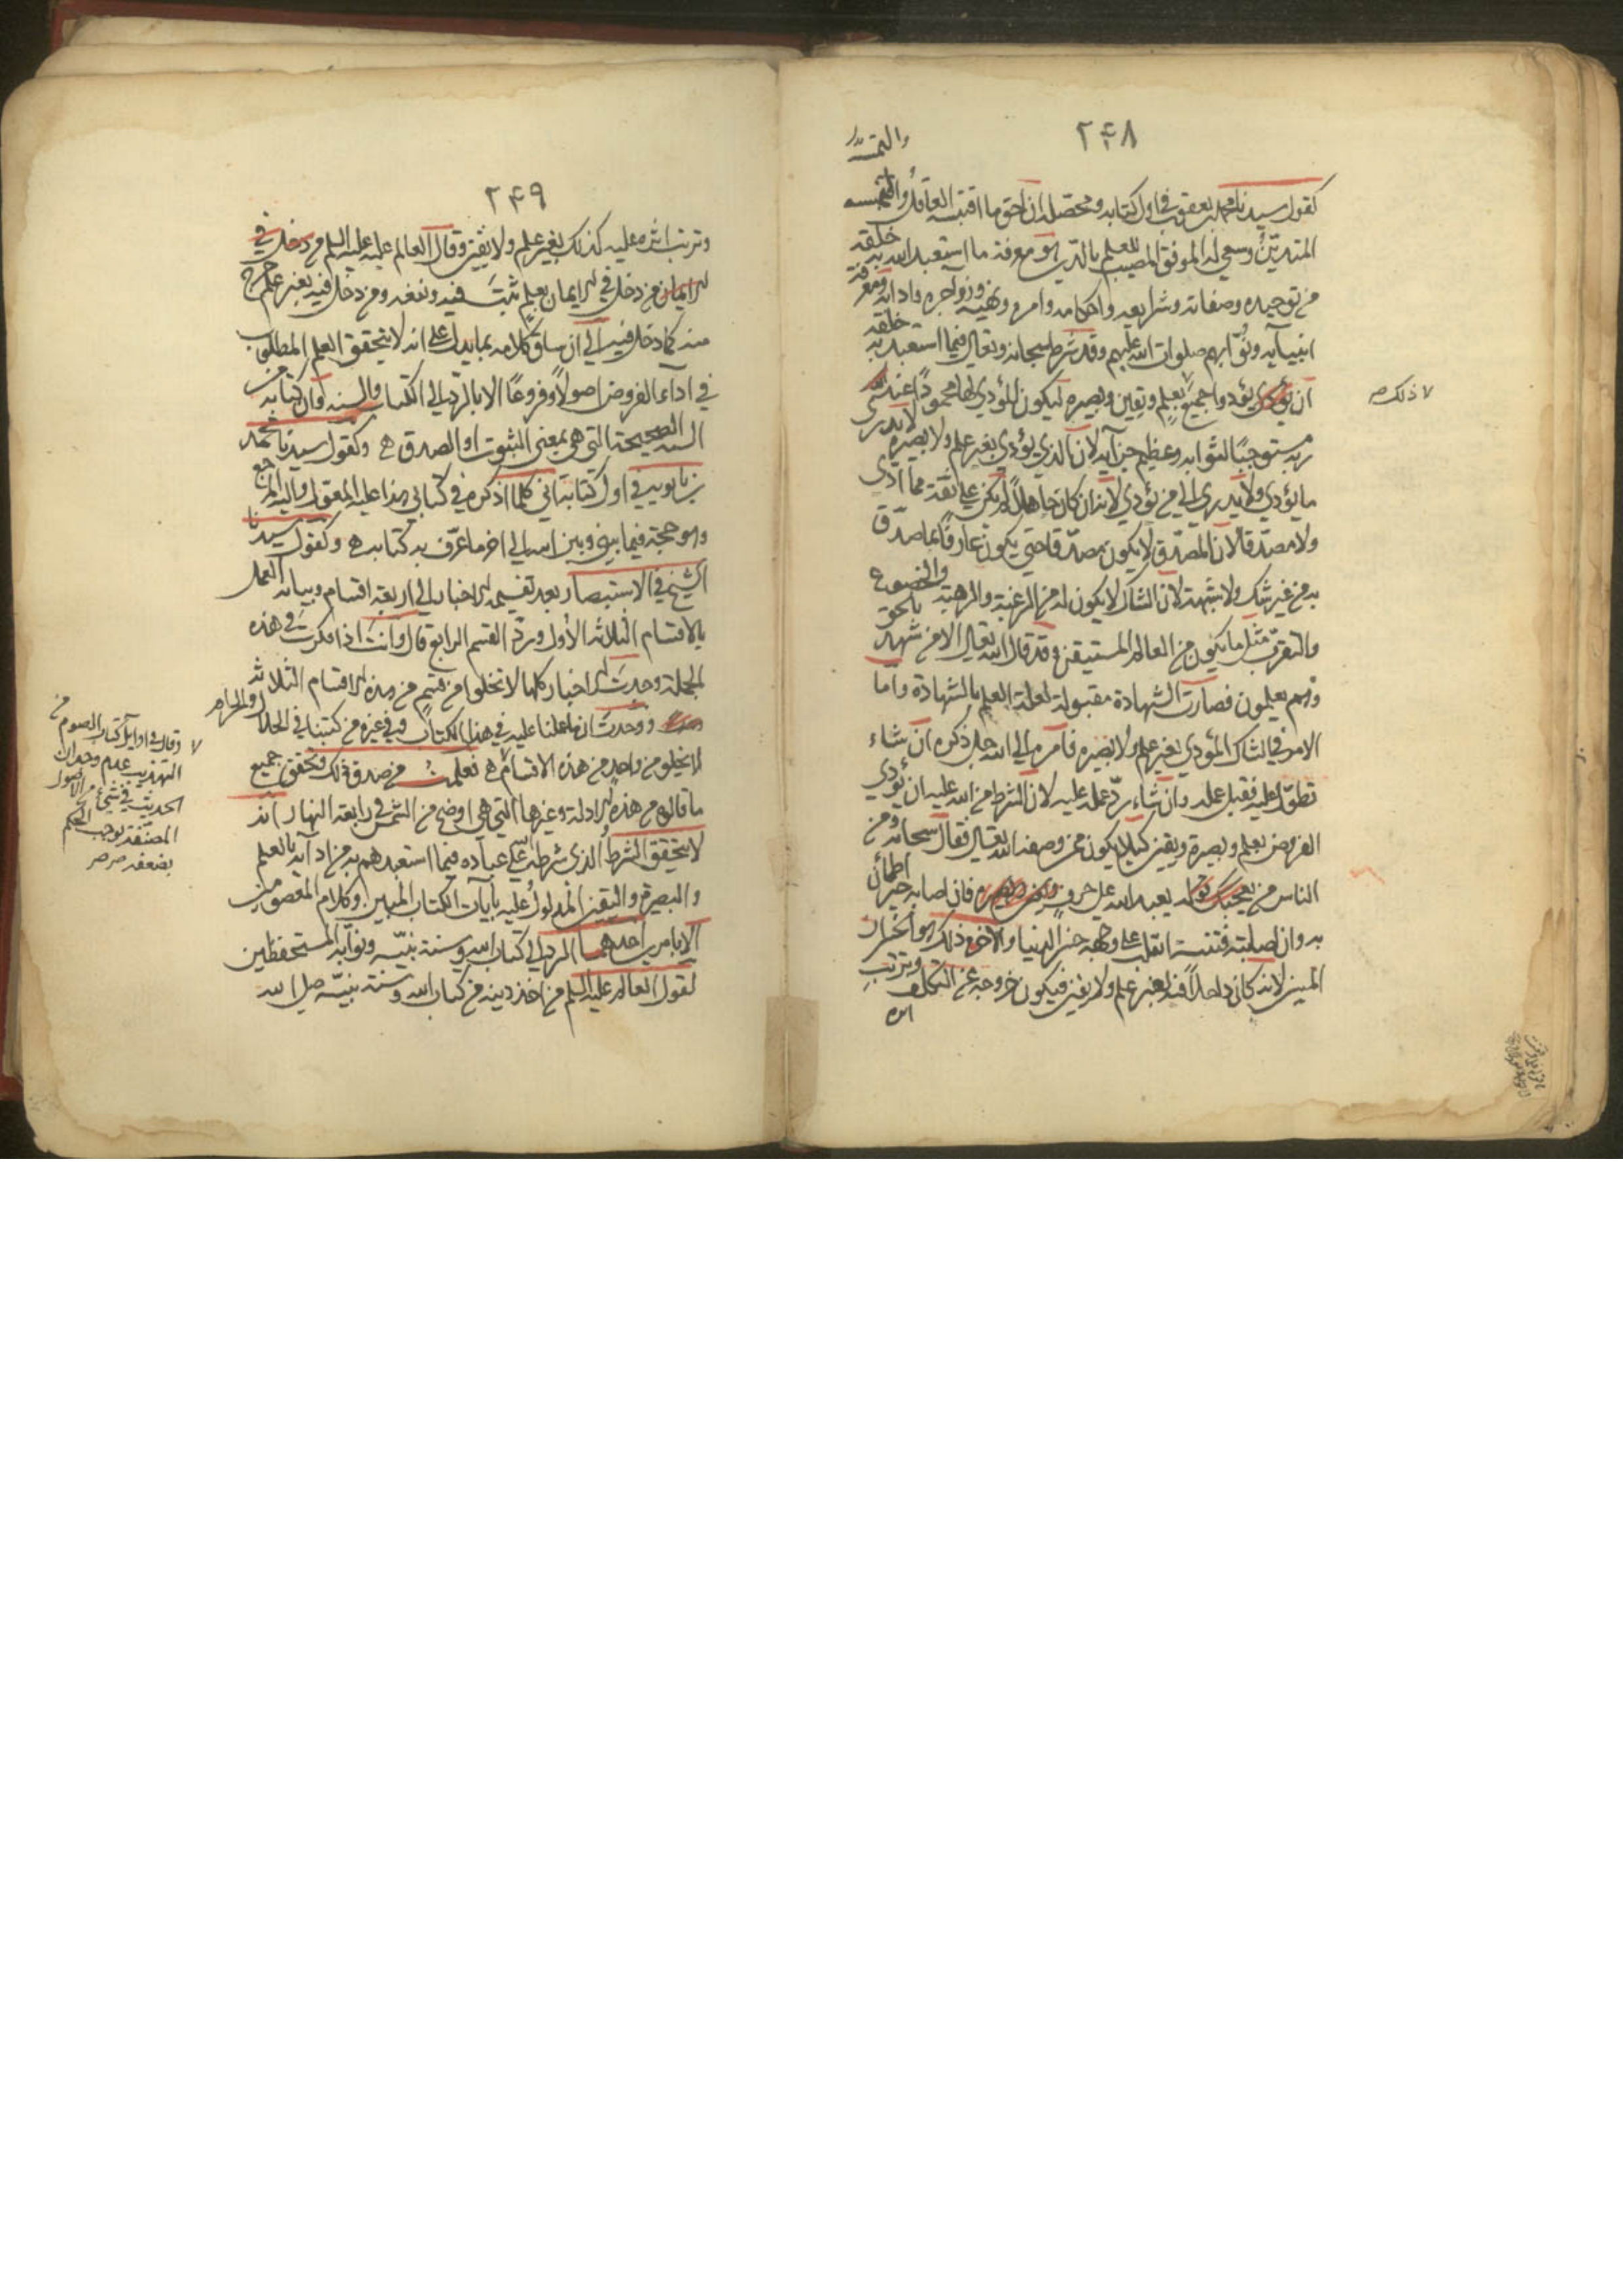 ٢٤٨
والتمسه
كقول سيدنا محمد بن يعقوب في اول كتابه ومحصله ان احق ما اقتبسه العاقل والتمسه
المتدين وسعى له الموفق المصيب العلم بالدين هو معرفة ما استعبد الله به خلقه
من توحيده وصفاته وشرايعه واحكامه وامره ونهيه وزواجره وادابه ومعرفة
انبيآئه ونوّابهم صلوات الله عليهم وقد شرط سبحانه وتعالى فيما استعبد به خلقه
ان يؤدوا جميع بعلم ويقين وبصيره ليكون المؤدي لها محمودًا عند
ربه مستوجبًا لثوابه وعظيم جزآئه لان الذي يؤدي بغير علم ولا بصيره لا يدرى
ما يؤدي ولا يدرى الى من يؤدي لانه ان كان جاهلًا لم يكن على ثقة مما ادى
ولا مصدّقا لان المصدّق لا يكون مصدّقا حتى يكون عارفًا بما صدّق
به من غير شك ولا شبهة لان الشاك لا يكون له من الرغبة والرهبة والخضوع
والتقرب مثل ما يكون من العالم المستيقن وقد قال الله تعالى الا من شهد بالحق
وهم يعلمون فصارت الشهادة مقبولة لعلة العلم بالشهادة واما
الامر في الشاك المؤدي بغير علم ولا بصيره فامره الى الله جل ذكره ان شاء
تطوّل عليه فقبل عمله وان شاء ردّ عمله عليه لان الشرط من الله عليه ان يؤدي
الفروض بعلم وبصيرة ويقين كيلا يكون ممن وصفه الله تعالى فقال سبحانه ومن
الناس من يعبد الله على حرف فان اصابه خير اطمأن
به وان اصابته فتنة انقلب على وجهه خسر الدنيا والاخرة ذلك هو الخسران
المبين لانه كان داخلًا فيه بغير علم ولا يقين فيكون خروجه عن التكلف وترتب
اثره
لا ذلك صح
٢٤٩
وترتب اثره عليه كذلك بغير علم ولا يقين وقال العالم عليه السلم من دخل في
الايمان من دخل في الايمان بعلم ثبت فيه ونفعه ومن دخل فيه بغير علم خرج
منه كما دخل فيه الى ان ساق كلامه بما يدل على انه لا يتحقق العلم المطلوب
في اداء الفروض اصولًا وفروعًا الا بالرد الى الكتاب والسنه وان كتابه من
السنه الصحيحة التي هي بمعنى الثبوت او الصدق ه وكقول سيدنا محمد
بن بابويه في اول كتابه اني كلما اذكره في كتابي هذا عليه المعوّل واليه المرجع
وهو حجة فيما بيني وبين الله الى اخر ما عرّف به كتابه ه وكقول سيدنا
الشيخ في الاستبصار بعد تقسيمه الاخبار الى اربعة اقسام وبيانه العمل
بالاقسام الثلاثه الأول وردّ القسم الرابع قال وانت اذا فكرت في هذه
الجملة وجدت الاخبار كلها لا تخلوا من قسم من هذه الاقسام الثلاثه
ووجدت ان ما عملنا عليه في هذا الكتاب وفي غيره من كتبنا في الحلال والحرام
لا يخلو من واحد من هذه الاقسام ه فعلمت من صدق ذلك وتحقق جميع
ما قالوه من هذه الادلة وغيرها التي هي اوضح من الشمس في رابعة النهار انه
لا يتحقق الشرط الذي شرطه على عباده فيما استعبدهم به من ادآئه بالعلم
والبصيرة واليقين المدلول عليه بآيات الكتاب المبين وكلام المعصومين
الا بامرين احدهما الرد الى كتاب الله وسنة نبيّه ونوّابه المستحفظين
لقول العالم عليه السلم من اخذ دينه من كتاب الله وسنة نبيّه صلى الله
لا وقال في اوايل كتاب الصوم من
التهذيب عدم وجدان
الحديث في شيء من الاصول
المصنّفة يوجب الحكم
بضعفه